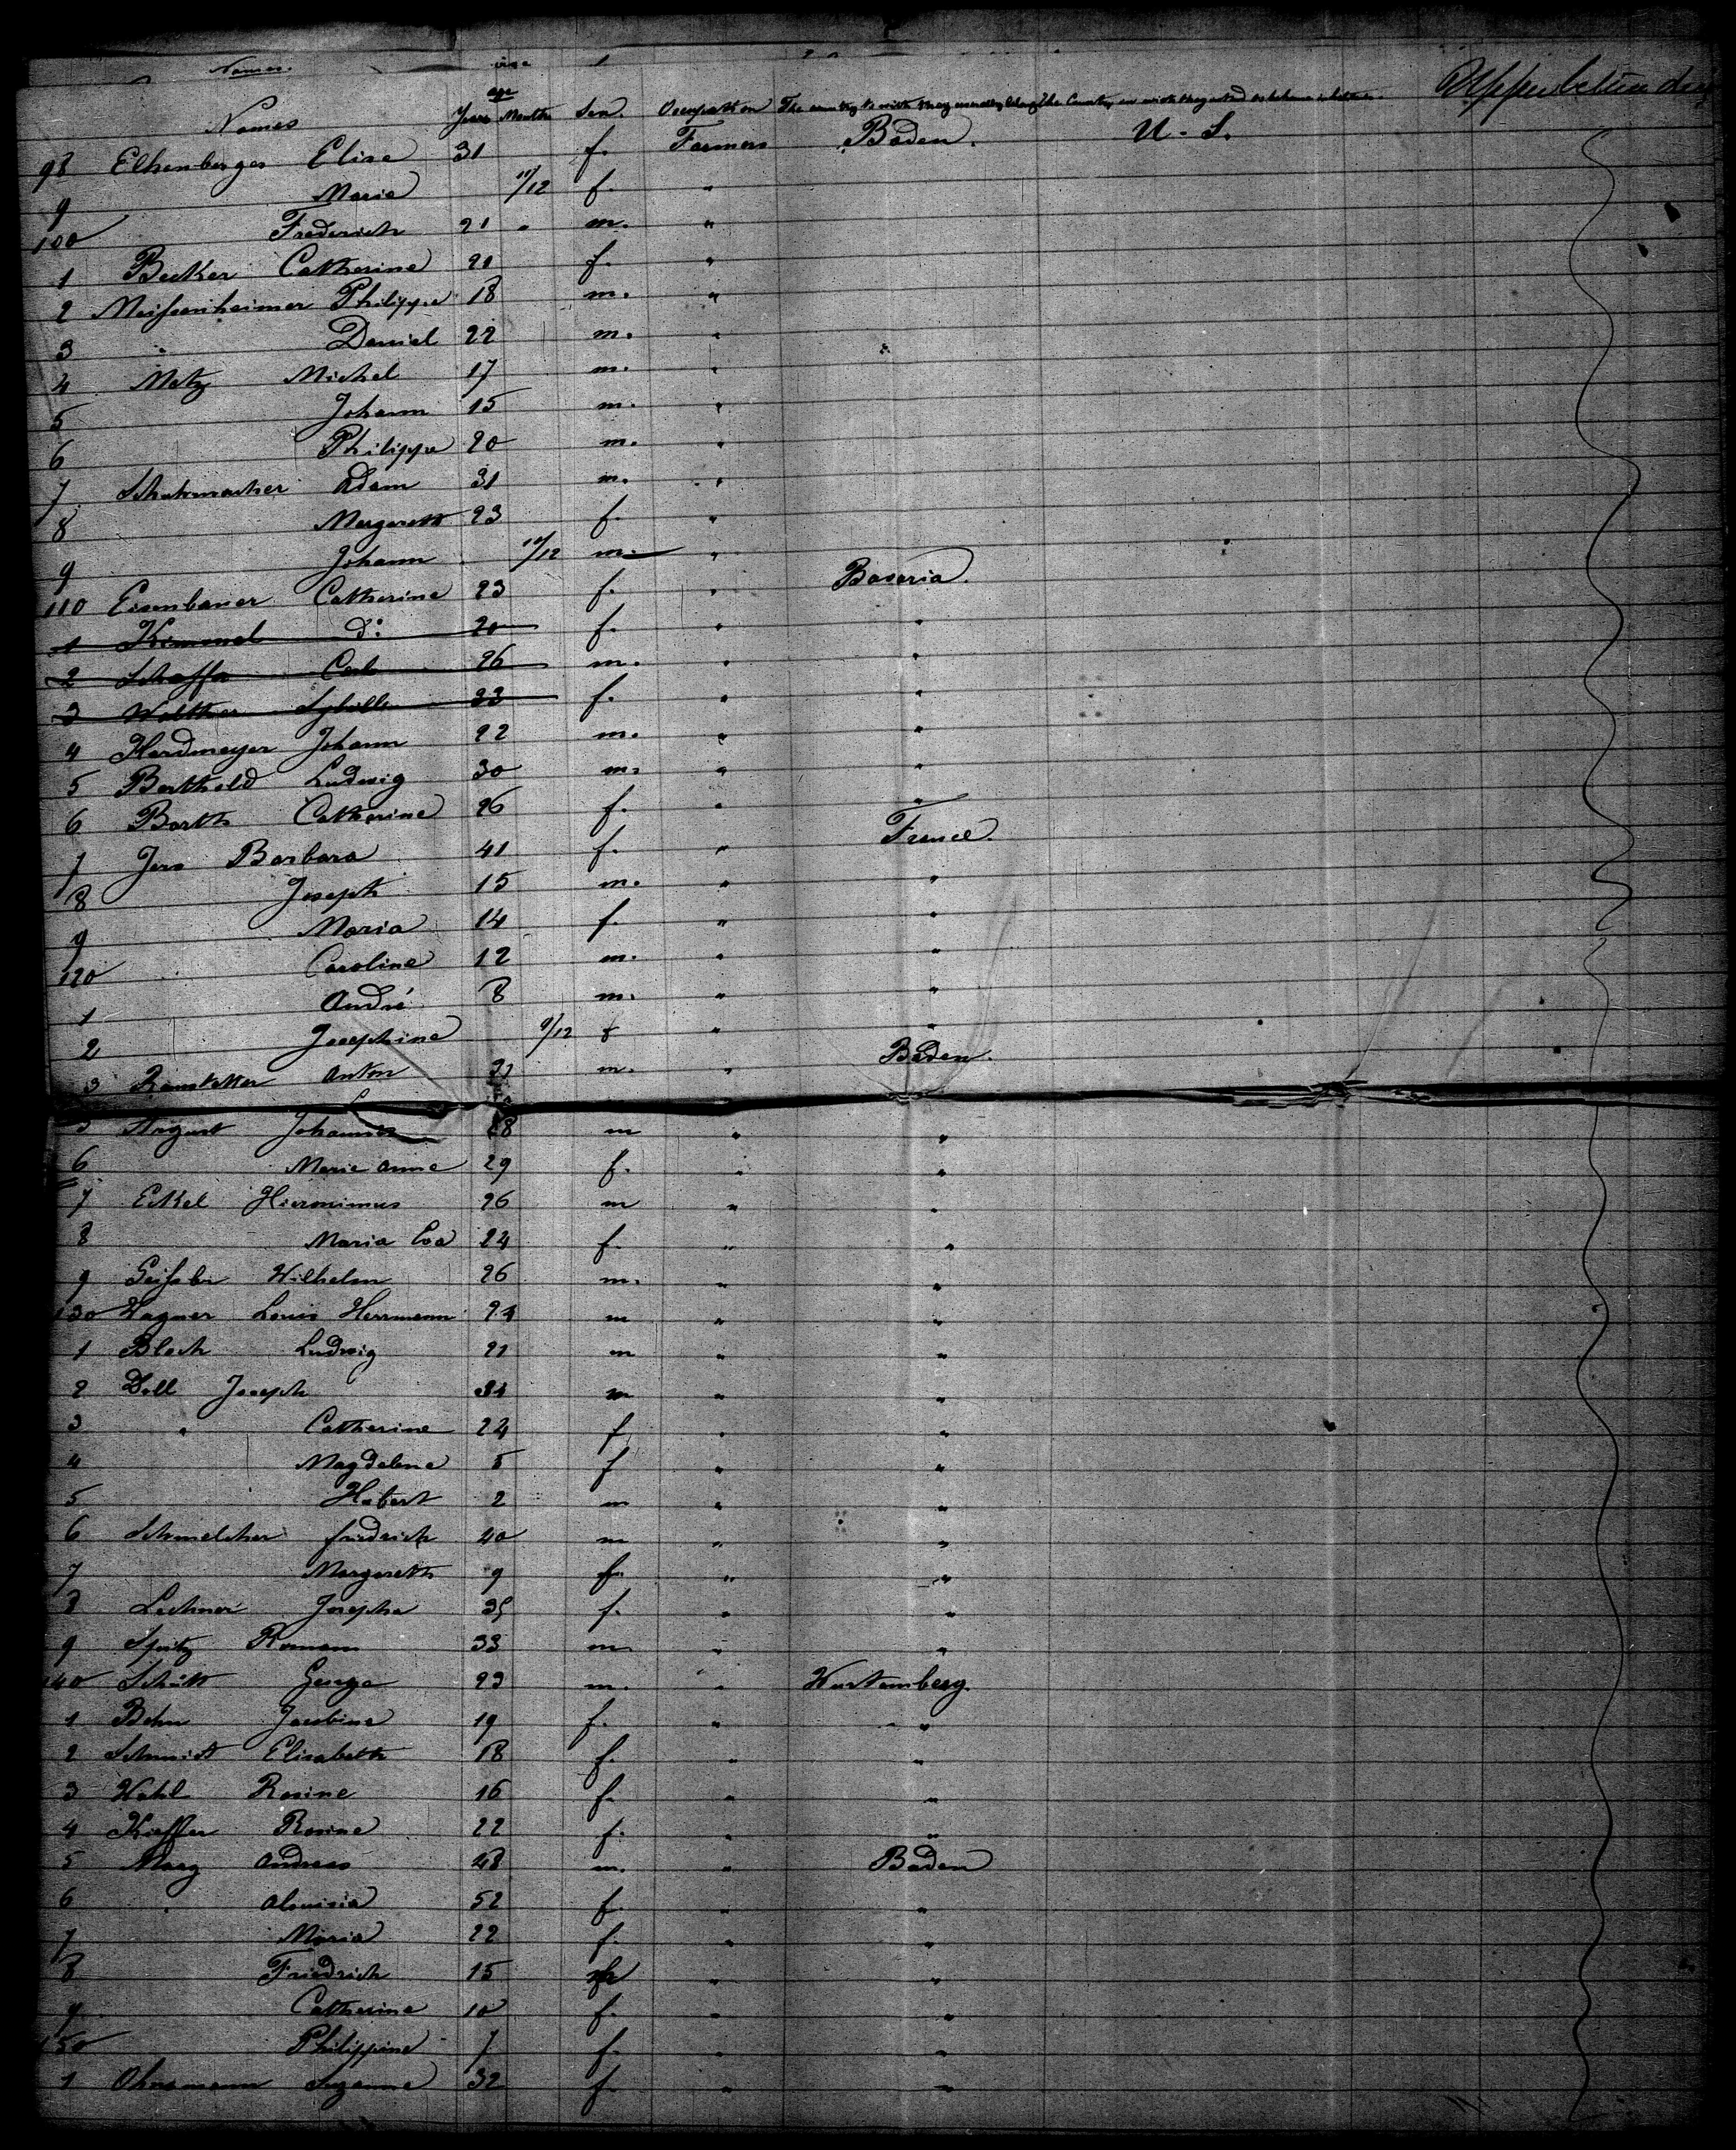 Names.
age
Names Years Months Sex. Occupation The country to wich they severally belong The Country in wich they intend to become inhabitants
98 Elkenberger Elise 31 f. Farmers Baden. U. S.
9 Maria 11/12 f. "
100 Frederich 21 " m. "
1 Becker Catherine 21 f. "
2 Meissenheimer Philippe 18 m. "
3 " Daniel 22 m. "
4 Metz Michel 17 m. "
5 Johann 15 m. "
6 Philippe 20 m. "
7 Schuhmacher Adam 31 m. "
8 Margareth 23 f. "
9 Johann 11/12 m. "
110 Eisenbauer Catherine 23 f. " Bavaria.
1 Kimmel do 20 f. " "
2 Schaffer Carl 26 m. " "
3 Walther Sybilla 33 f. " "
4 Hardmeyer Johann 22 m. " "
5 Berthold Ludwig 30 m. " "
6 Barth Catherine 26 f. " "
7 Jers Barbara 41 f. " France.
8 Joseph 15 m. " "
9 Maria 14 f. " "
120 Caroline 12 m. " "
1 André 8 m. " "
2 Josephine 9/12 f " "
3 Ramstetter Anton 21 m. " Baden.
5 Johannes 28 m " "
6 Marie Anne 29 f. " "
7 Eckel Hieronimus 26 m " "
8 Maria Eva 24 f. " "
9 Geissler Wilhelm 26 m. " "
130 Wagner Louis Herrmann 24 m " "
1 Bloch Ludwig 21 m " "
2 Doll Joseph 34 m " "
3 " Catherine 24 f " "
4 Magdelene 5 f " "
5 Hubert 2 m " "
6 Schmelcher friedrich 40 m " "
7 Margareth 9 f. " "
8 Lechner Josepha 35 f. " "
9 Spitz Romann 33 m. " "
140 Schütt George 23 m. " Wurtemberg.
1 Behn Jacobine 19 f. " "
2 Schmidt Elisabeth 18 f. " "
3 Wahl Rosine 16 f. " "
4 Kieffer Rosine 22 f. " "
5 Marg Andreas 48 m. " Baden
6 " Alouisia 52 f. " "
7 Maria 22 f. " "
8 Friedrich 15 m " "
9 Catherine 10 f. " "
150 Philippine 7 f. " "
1 Ohnemann Suzanne 32 f. " "